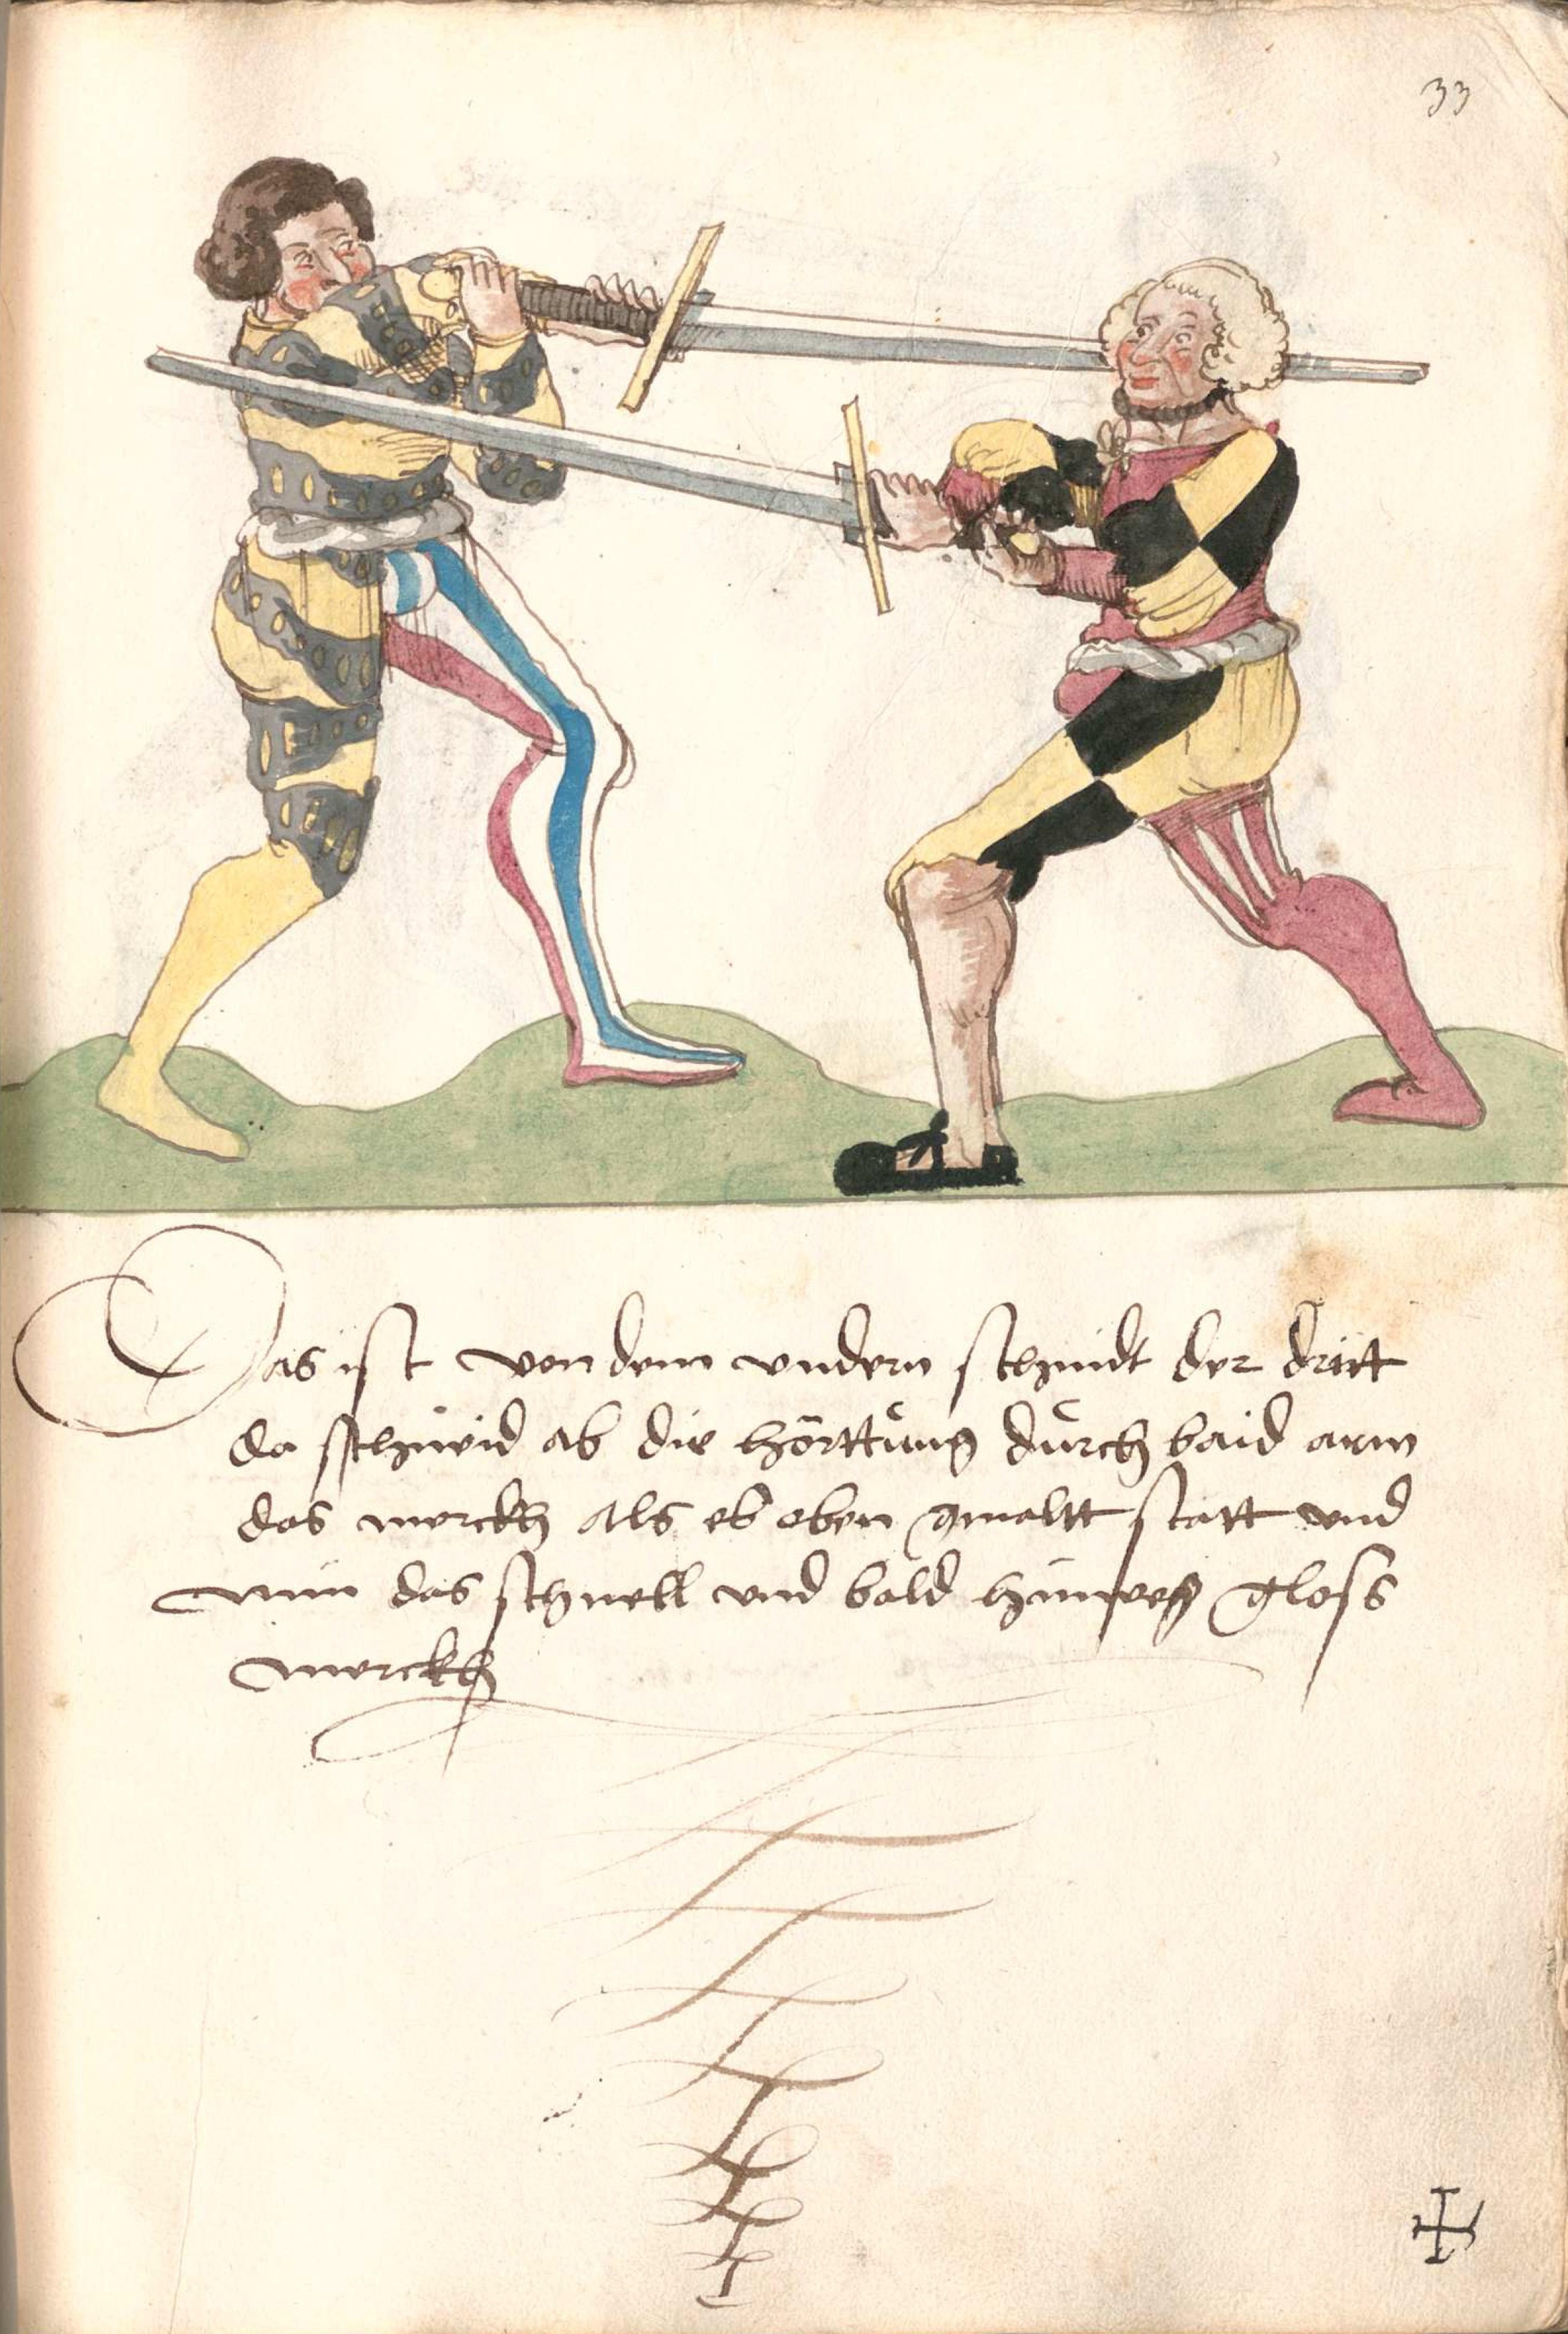 33
Das ist von dem vndern schnidt der dritt
da schneid ab die hörttung durch baid arm
das merckh als eb oben gmaltt statt vnd
nim das schnell vnd bald hinweg gloss
merckh